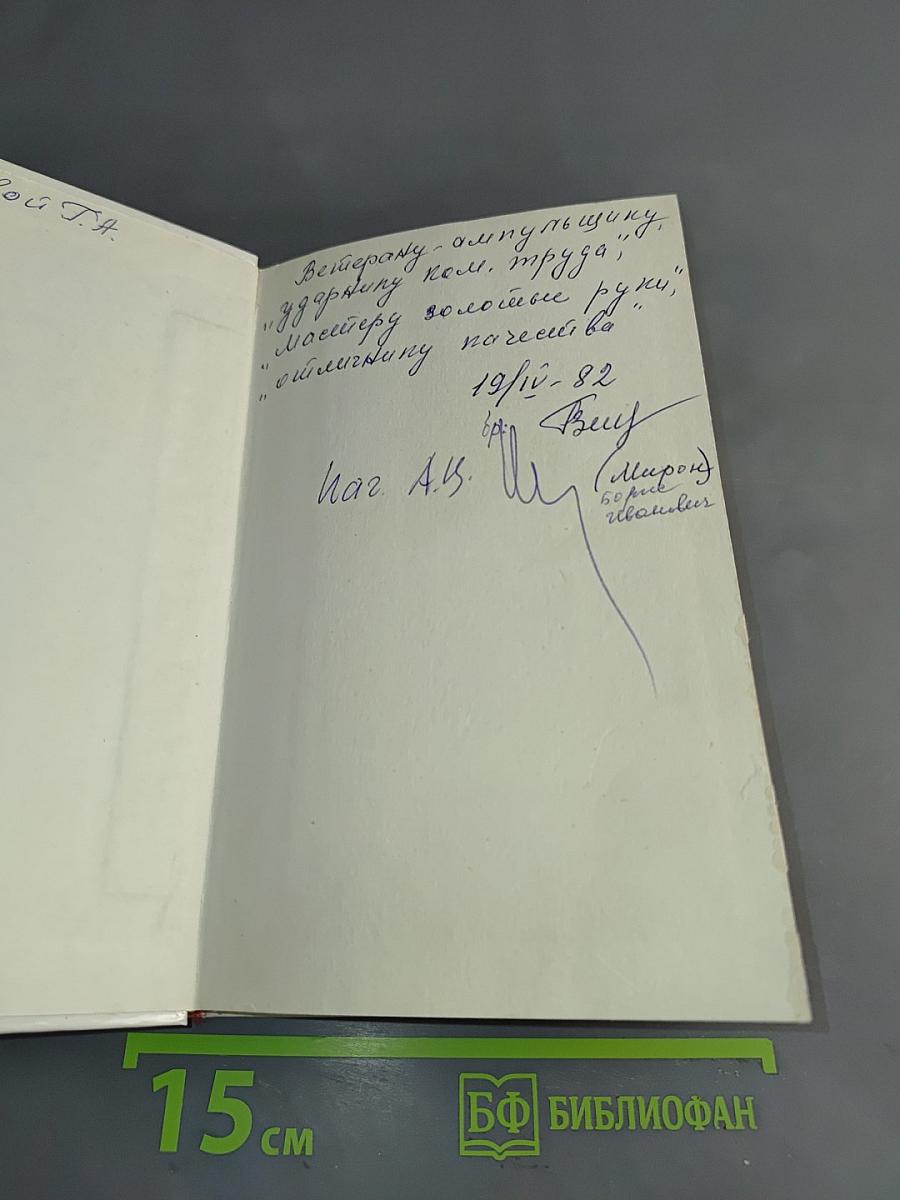 вой Т.А.
Ветерану-ампульщику,
"ударнику ком. труда",
"мастеру золотые руки",
"отличнику качества"
19/IV-82
Нач. А.Ц.
(Мирон)
Борис
Иванович
15 см
БФ БИБЛИОФАН